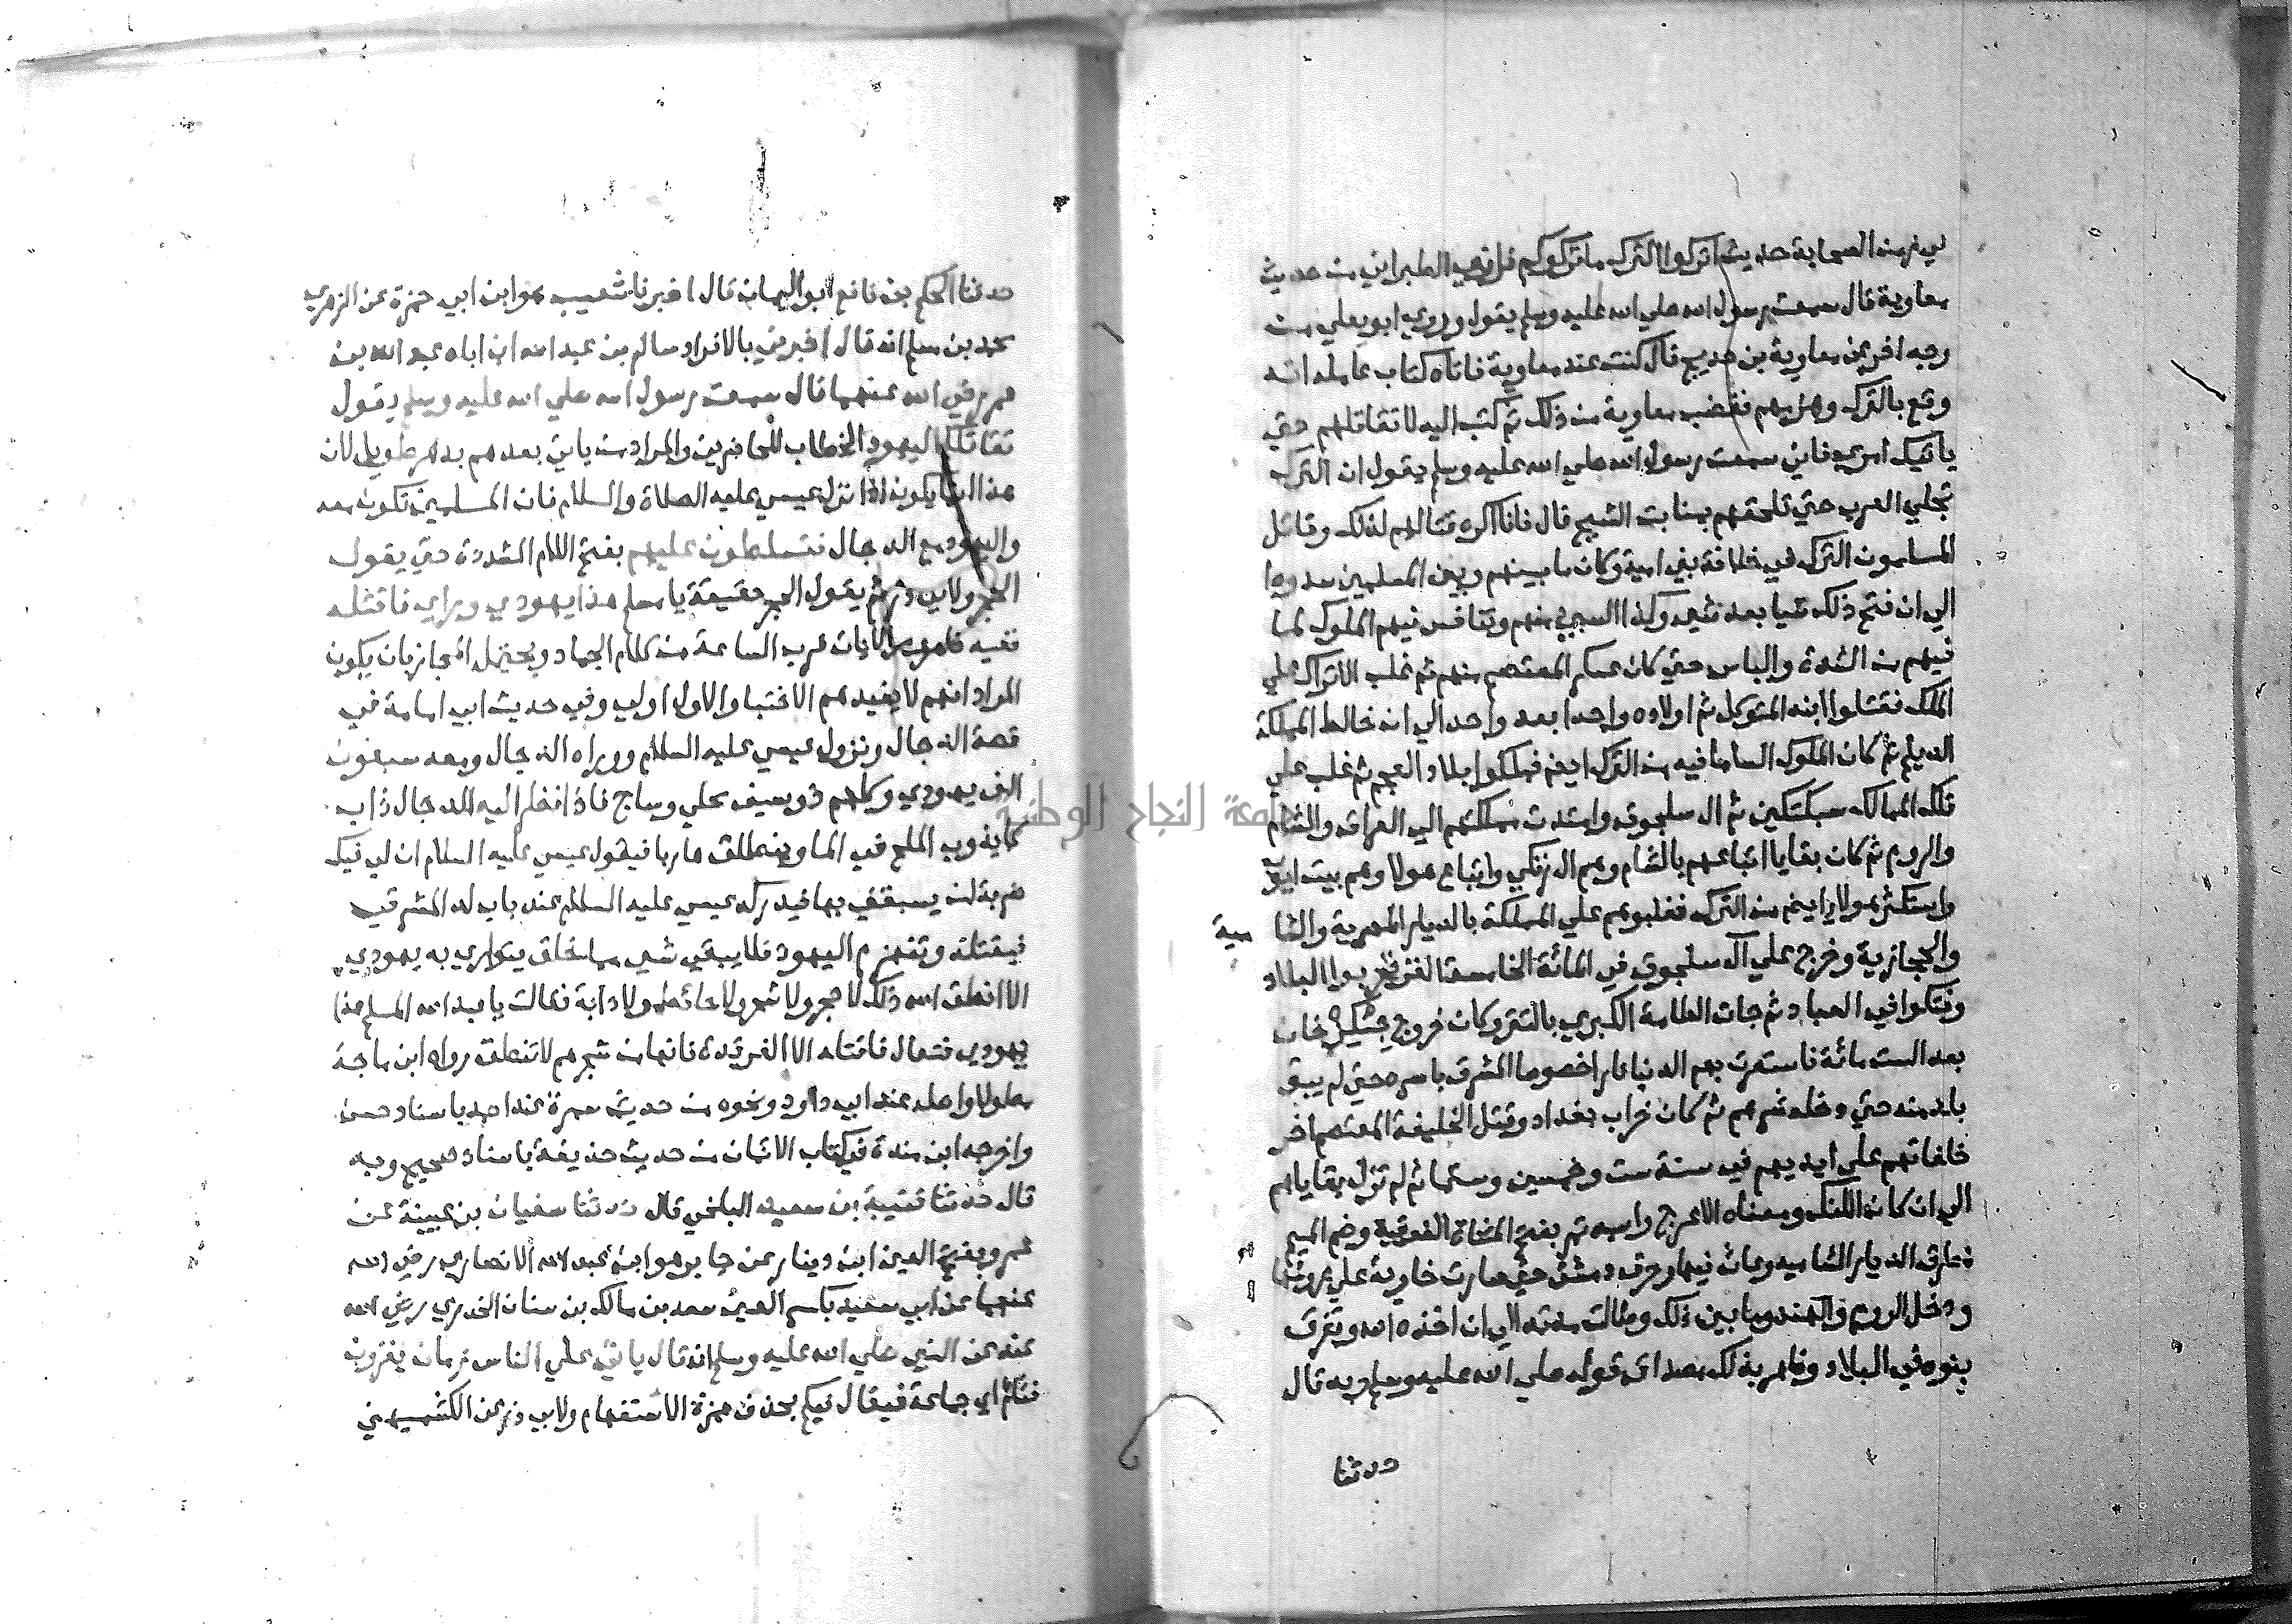 في زمن الصحابة حديث اتركوا الترك ما تركوكم فروي الطبراني من حديث
معاوية قال سمعت رسول الله صلي الله عليه وسلم يقوله وروي ابو يعلي من
وجه اخر عن معاوية بن حديج قال كنت عند معاوية فاتاه كتاب عامله انه
وقع بالترك وهزمهم فغضب معاوية من ذلك ثم كتب اليه لا تقاتلهم حتي
ياتيك امري فاني سمعت رسول الله صلي الله عليه وسلم يقول ان الترك
تجلي العرب حتي تلحقهم بمنابت الشيح قال فانا اكره قتالهم لذلك وقاتل
المسلمون الترك في خلافة بني امية وكان ما بينهم وبين المسلمين مسدودا
الي ان فتح ذلك شيا بعد شي وكذا السبي منهم وتنافس فيهم الملوك لما
فيهم من الشدة والباس حتي كان عسكر المعتصم منهم ثم غلب الاتراك علي
الملك فقتلوا ابنه المتوكل ثم اولاده واحدا بعد واحد الي ان خالط المملكة
الديلم ثم كان الملوك السامانية من الترك ايضم فملكوا بلاد العجم ثم غلب علي
تلك الممالك سبكتكين ثم ال سلجوق وامتدت مملكتهم الي العراق والشام
والروم ثم كان بقايا اتباعهم بالشام وهم ال زنكي واتباع هولا وهم بيت ايوب
واستكثر هولا ايضم من الترك فغلبوهم علي المملكة بالديار المصرية والشا مية
والحجازية وخرج علي آل سلجوق في المائة الخامسة الغز فخربوا البلاد
وفتكوا في العباد ثم جات الطامة الكبري بالتتر وكان خروج جنكيز خان
بعد الست مائة فاستعرت بهم الدنيا نارا خصوصا المشرق باسره حتي لم يبق
بلد منه حتي دخله شرهم ثم كان خراب بغداد وقتل الخليفة المعتصم اخر
خلفائهم علي ايديهم في سنة ست وخمسين وستمائة ثم لم تزل بقاياهم
الي ان كان اللنك ومعناه الاعرج واسمه تمر بفتح المثناة الفوقية وضم الميم
فطرق الديار الشاميه وعاث فيها وحرق دمشق حتي صارت خاوية علي عروشها
ودخل الروم والهند وما بين ذلك وطالت مدته الي ان اخذه الله وتفرق
بنوه في البلاد وظهر بذلك مصداق قوله صلي الله عليه وسلم وبه قال
حدثنا
حدثنا الحكم بن نافع ابو اليمان قال اخبرنا شعيب هو ابن ابي حمزة عن الزهري
محمد بن مسلم انه قال اخبرني بالافراد سالم بن عبد الله ان اباه عبد الله بن
عمر رضي الله عنهما قال سمعت رسول الله صلي الله عليه وسلم يقول
تقاتلكم اليهود الخطاب للحاضرين والمراد من ياتي بعدهم بدهر طويل لان
هذا انما يكون اذا نزل عيسي عليه الصلاة والسلام فان المسلمين تكون معه
واليهود مع الدجال فتسلطون عليهم بفتح اللام المشددة حتي يقول
الحجر ولابي ذر ثم يقول الحجر حقيقة يا مسلم هذا يهودي وراي فاقتله
ففيه ظهور الايات قرب الساعة من كلام الجماد ويحتمل المجاز بان يكون
المراد انهم لا يفيدهم الاختبا والاول اولي وفي حديث ابي امامة في
قصة الدجال ونزول عيسي عليه السلام ووراه الدجال ومعه سبعون
الف يهودي وكلهم ذو سيف محلي وساج فاذا نظر اليه الدجال ذاب
كما يذوب الملح في الما وينطلق هاربا فيقول عيسي عليه السلام ان لي فيك
ضربة لن يسبقني بها فيدركه عيسي عليه السلام عند باب لد الشرقي
فيقتله وتهزم اليهود فلا يبقي شي مما خلق يتواري به يهودي
الا انطق الله ذلك لا حجر ولا شجر ولا حائط ولا دابة فقالت يا عبد الله المسلم هذا
يهودي فتعال فاقتله الا الغرقدة فانها من شجرهم لا تنطق رواه ابن ماجة
مطولا واصله عند ابي داود ونحوه من حديث سمرة عند احمد باسناد حسن
واخرجه ابن مندة في كتاب الايمان من حديث حذيفة باسناد صحيح وبه
قال حدثنا قتيبة بن سعيد البلخي قال حدثنا سفيان بن عيينة عن
عمرو بفتح العين ابن دينار عن جابر هو ابن عبد الله الانصاري رضي الله
عنهما عن ابي سعيد بكسر العين سعد بن مالك بن سنان الخدري رضي الله
عنه عن النبي صلي الله عليه وسلم انه قال ياتي علي الناس زمان يغزون
فئام اي جماعة فيقال فيكم بحذف همزة الاستفهام ولابي ذر عن الكشميهني
جامعة النجاح الوطنية